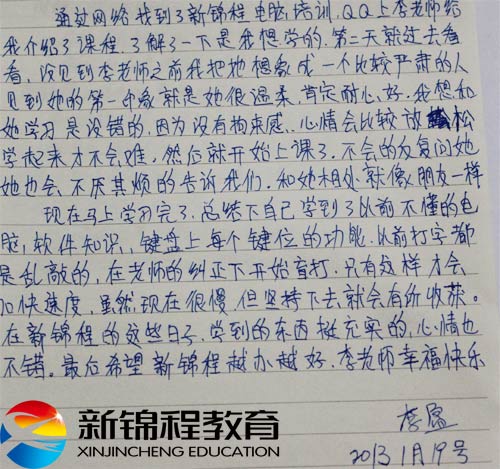 通过网络找到了新锦程电脑培训.QQ上李老师给
我介绍了课程.了解了一下是我想学的.第二天就过去看
看,没见到李老师之前我把她想象成一个比较严肃的人
见到她的第一印象就是她很温柔,肯定耐心好.我想和
她学习是没错的,因为没有拘束感.心情会比较放松
学起来才不会难.然后就开始上课了.不会的反复问她
她也会不厌其烦的告诉我们.和她相处就像朋友一样
现在马上学习完了.总结下自己学到了以前不懂的电
脑,软件知识,键盘上每个键位的功能.以前打字都
是乱敲的,在老师的纠正下开始盲打.只有这样才会
加快速度,虽然现在很慢但坚持下去就会有所收获.
在新锦程的这些日子.学到的东西挺充实的,心情也
不错。最后希望新锦程越办越好.李老师幸福快乐
李盈
2013 1月19号
新锦程教育
XINJINCHENG EDUCATION